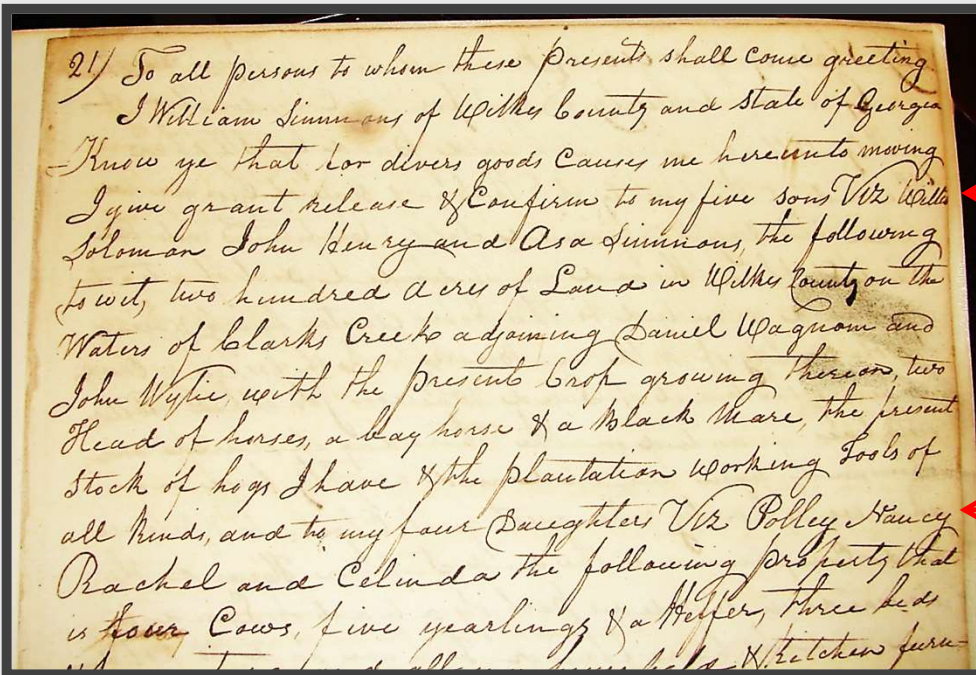 21) To all persons to whom these presents shall come greeting
I William Simmons of Wilkes County and State of Georgia
Know ye that for divers goods Causes me hereunto moving
I give grant release & Confirm to my five sons Viz Willis
Solomon John Henry and Asa Simmons, the following
to wit, two hundred acres of Land in Wilkes County on the
Waters of Clarks Creek adjoining Daniel Wagnom and
John Wylie, with the present Crop growing thereon, two
Head of horses, a bay horse & a Black Mare, the present
Stock of hogs I have & the plantation working Tools of
all kinds, and to my four Daughters Viz Polley Nancy
Rachel and Celinda the following property that
is four Cows, five yearlings & a Heffer, three beds
& kitchen furn=